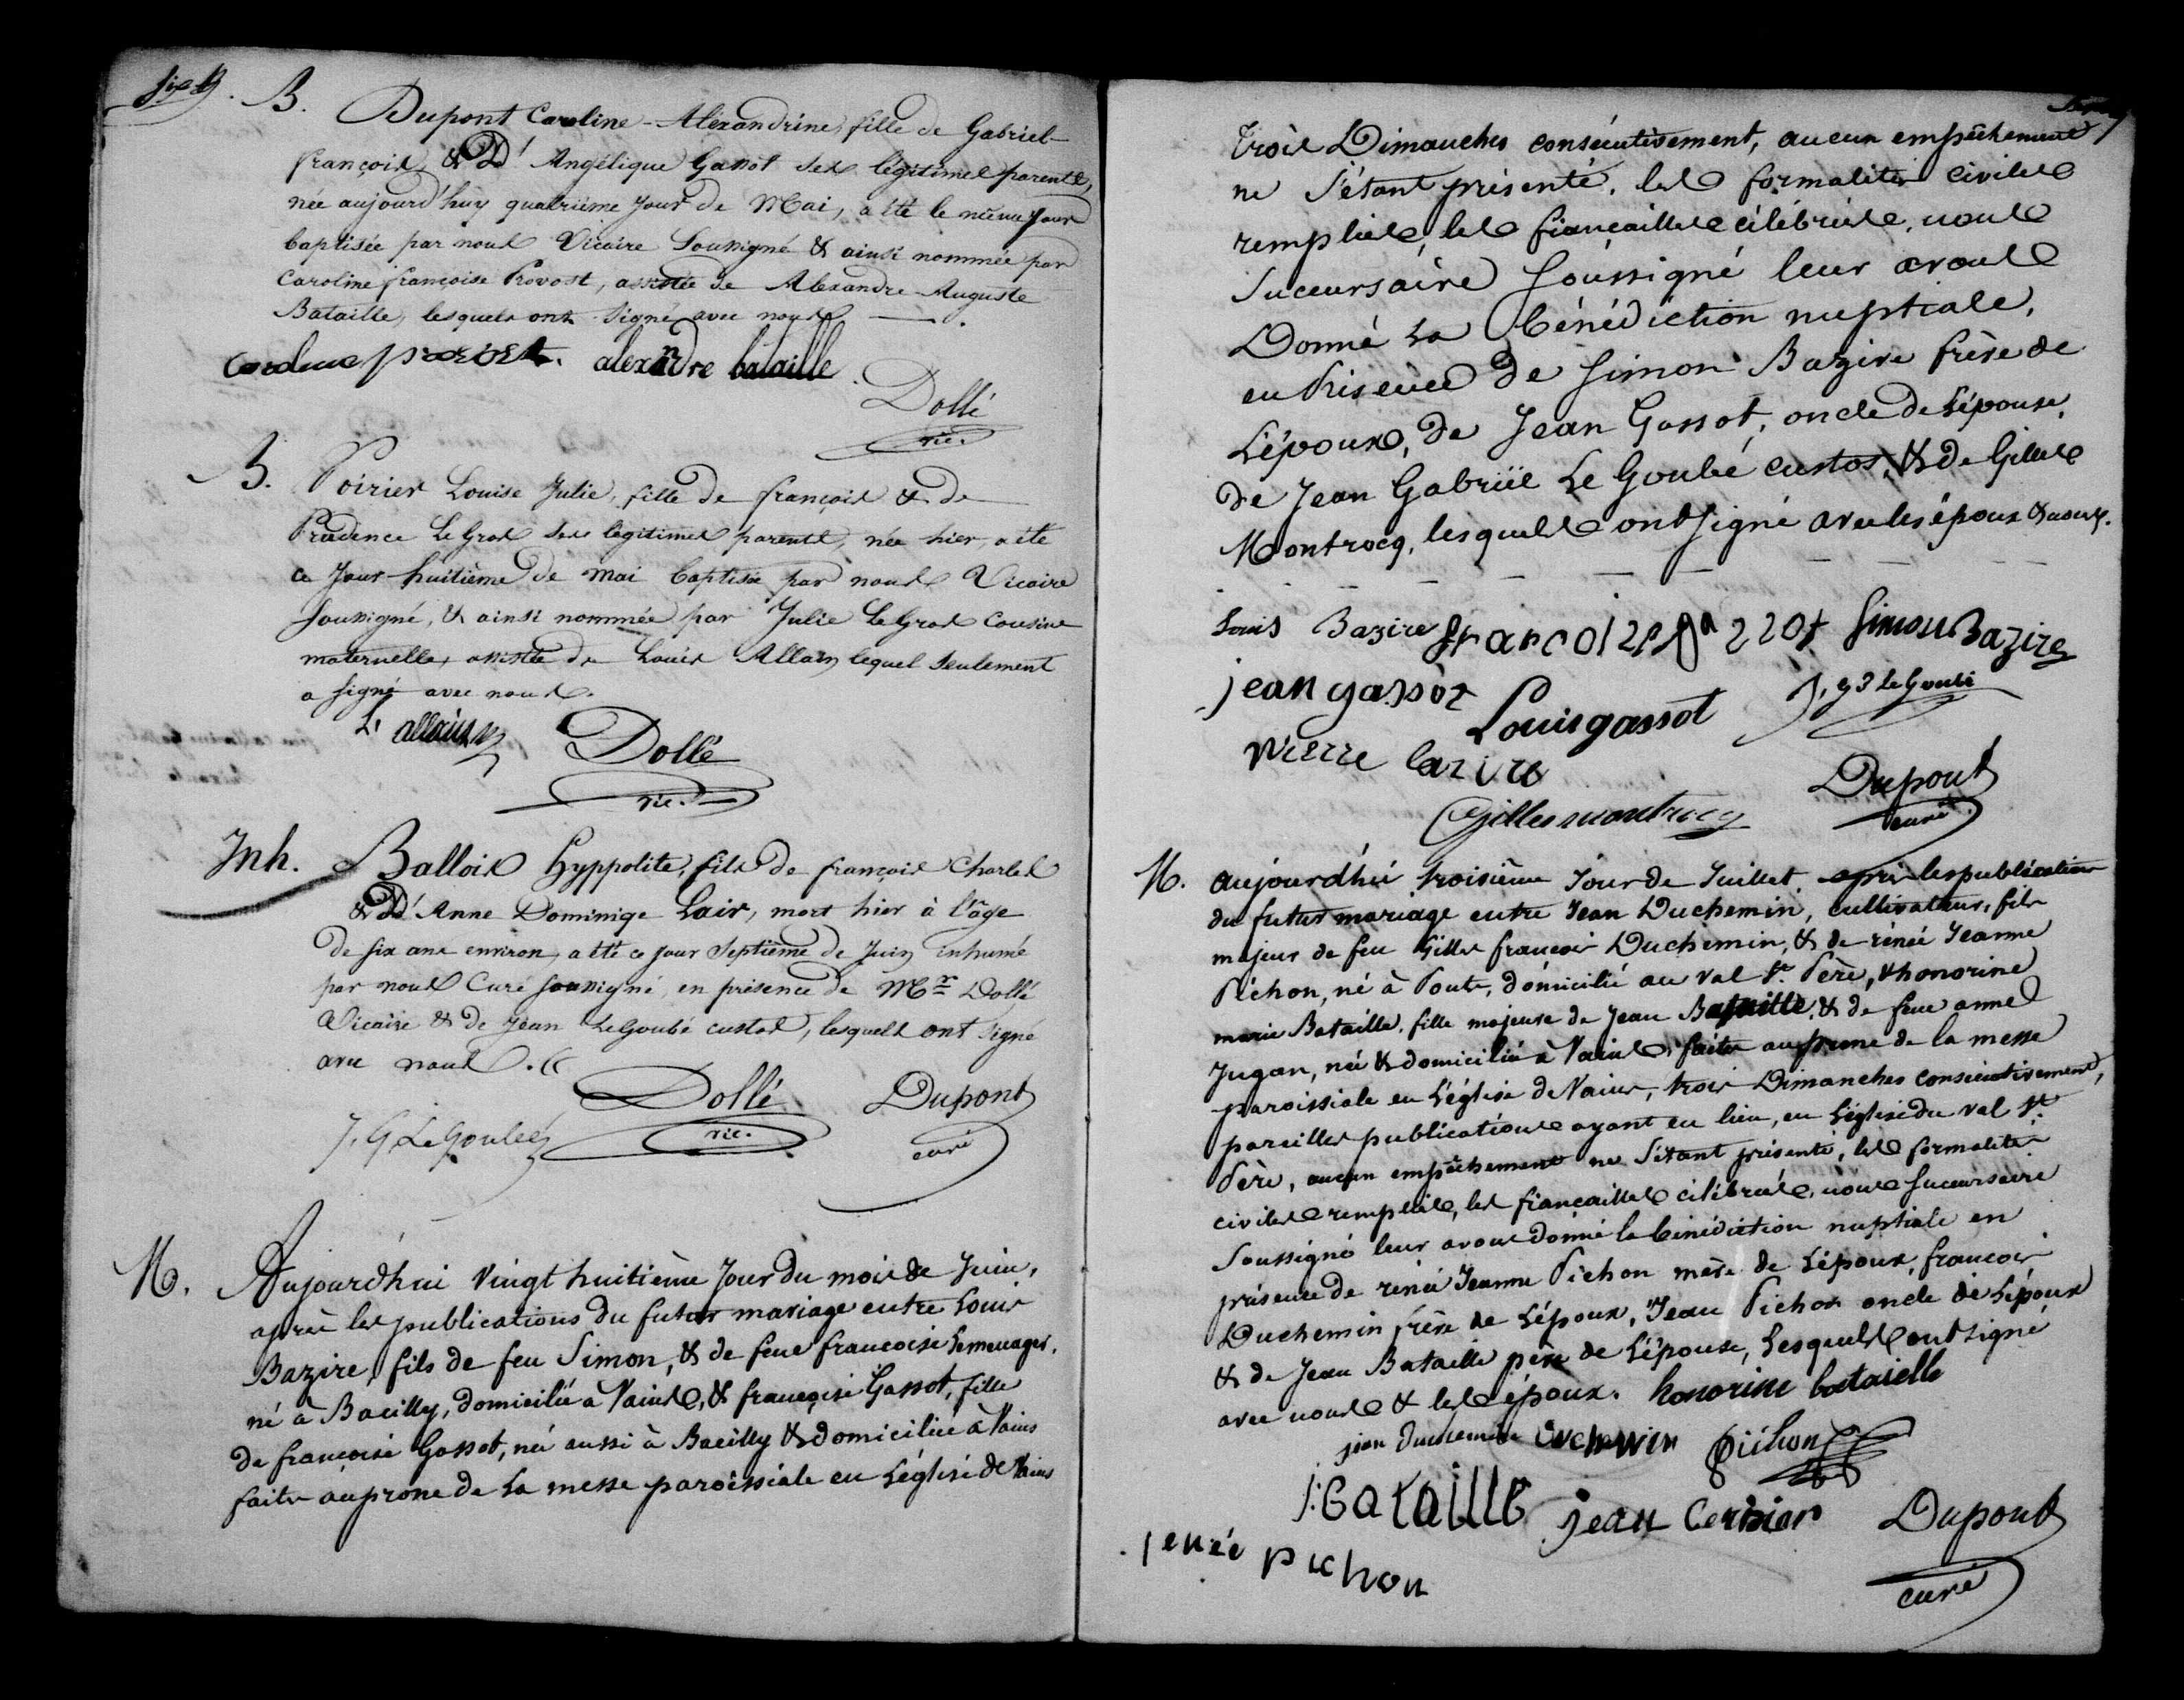 B. Dupont Caroline-Alexandrine, fille de Gabriel
françois, & d' Angélique Gassot ses légitimes parents,
née aujourd'huy quatrième jour de Mai, a été le même jour
baptisée par nous Vicaire Soussigné & ainsi nommée par
Caroline françoise Provost, assistée de Alexandre-Auguste
Bataille, lesquels ont signé avec nous.
alexandre bataille
Dollé
vic.
B. Poirier Louise Julie, fille de françois & de
Prudence LeGros ses légitimes parents, née hier, a été
ce jour huitième de mai baptisée par nous Vicaire
Soussigné, & ainsi nommée par Julie LeGros Cousine
maternelle, assistée de Louis Allain lequel seulement
a signé avec nous.
L. allain
Dollé
vic.
Inh. Ballois hyppolite, fils de françois Charles
& d' Anne Dominiqe Lair, mort hier à l'âge
de six ans environ, a été ce jour Septième de Juin inhumé
par nous Curé soussigné, en présence de Mr Dollé
Vicaire & de Jean LeGoubé custos, lesquels ont signé
avec nous.
J. G LeGoubé
Dollé
vic.
Dupont
curé
M. Aujourd'hui vingt huitième Jour du mois de Juin,
après les publications du futur mariage entre Louis
Bazire, fils de feu Simon, & de feue françoise Lemenager,
né à Bacilly, domicilié à Vains, & françoise Gassot, fille
de françoise Gassot, née aussi à Bacilly & domiciliée à Vains
faites au prone de La messe paroissiale en L'église de Vains
trois Dimanches consécutivement, aucun empêchement
ne s'étant présenté, les formalités civiles
remplies, les fiançailles célébrées, nous
Succursaire Soussigné leur avons
Donné La bénédiction nuptiale,
en Présence de Simon Bazire frère de
L'époux, de Jean Gassot, oncle de L'épouse,
de Jean Gabriël Le Goubé custos, & de Gilles
Montrocq, lesquels ont signé avec les époux & nous.
Louis Bazire françoise ga220t Simon Bazire
jean gassot
Louis gassot
J. G LeGoubé
Pierre bazire
Gilles montrocq
Dupont
curé
M. aujourd'hui troisième Jour de Juillet, après les publications
du futur mariage entre Jean Duchemin, cultivateur, fils
majeur de feu Gilles françois Duchemin, & de rénée Jeanne
Pichon, né à Ponts, domicilié au Val St Père, & honorine
marie Bataille, fille majeure de Jean Bataille, & de feue anne
Jugan, née & domiciliée à Vains, faites au prone de la messe
paroissiale en L'église de Vains, trois Dimanches consécutivement,
pareilles publications ayant eu lieu, en L'église du Val St
Père, aucun empêchement ne s'étant présenté, les formalités
civiles remplies, les fiançailles célébrées, nous Succursaire
Soussigné leur avons donné la bénédiction nuptiale en
présence de rénée Jeanne Pichon mère de L'époux, françois
Duchemin frère de L'époux, Jean Pichon oncle de L'époux
& de Jean Bataille père de L'épouse, Lesquels ont signé
avec nous & les époux. honorine bataielle
jean duchemin duchemin Pichon
J. Bataille jean Cerisier Dupont
curé
renée pichon